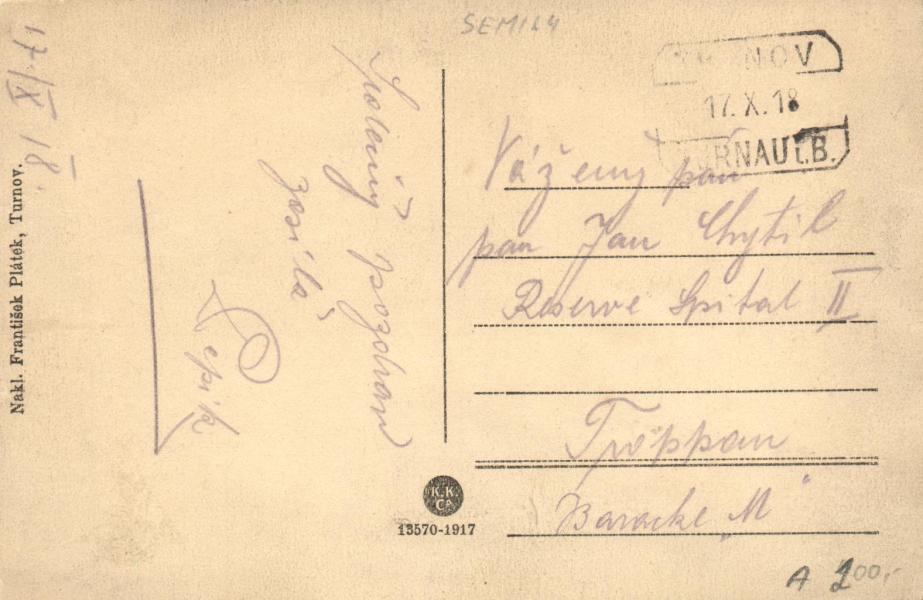 SEMILY
17/IX 18.
Nakl. František Plátek, Turnov.
pozdrav
zasílá
Lepík
K.K.
CA
13570-1917
TURNOV
17. X. 18
TURNAU i. B.
Vážený pan
pan Jan Chytil
Reserve Spital II
Troppau
Baracke „M"
A 200,-